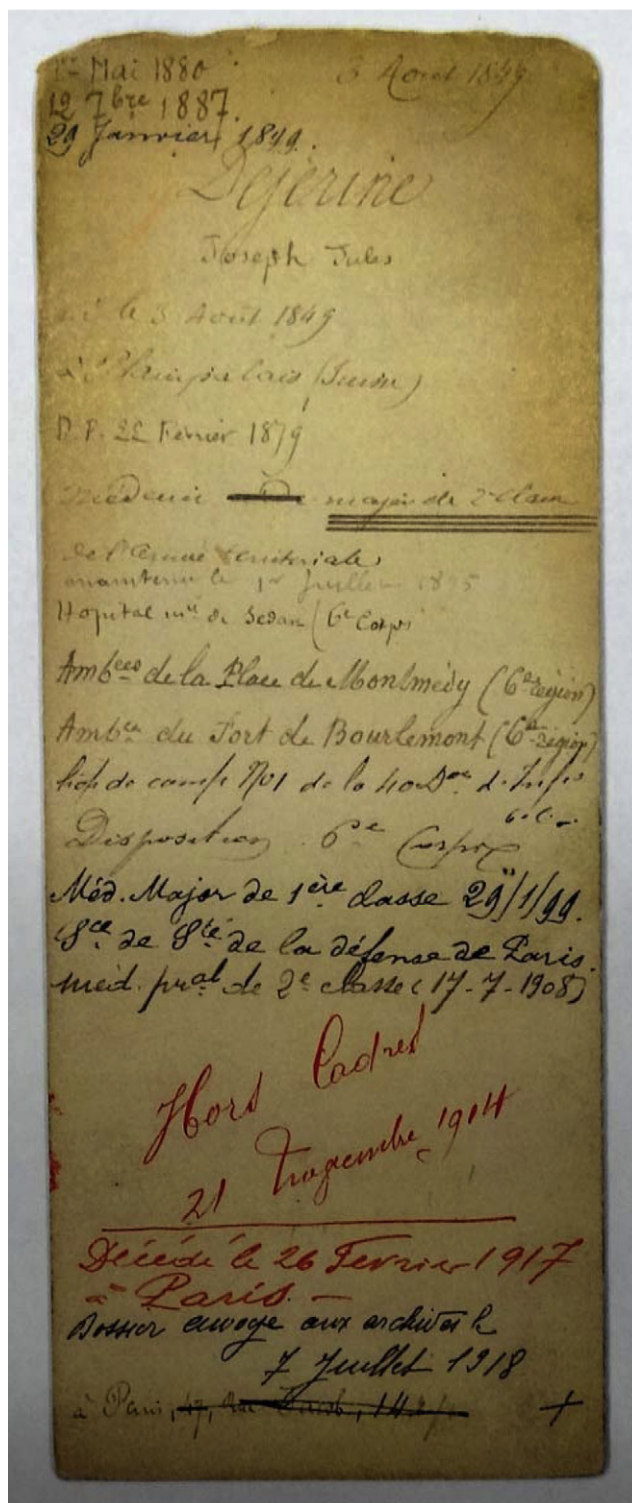 1er Mai 1880 3 Aout 1849
12 7bre 1887.
29 Janvier 1849.
Dejerine
Joseph Jules
né le 3 Août 1849
à Plainpalais (Suisse)
D.P. 22 Février 1879
Médecin major de 2e Classe
de l'Armée territoriale
maintenu le 1er Juillet 1895
Hopital mre de Sedan (6e Corps
Ambces de la Place de Montmédy (6e région)
Ambce du Fort de Bourlemont (6e région)
hop de camp No1 de la 40e Don d'Infie
Disposition 6e Corps
Méd. Major de 1ère classe 29/1/99.
Sce de Sté de la défense de Paris.
méd. pral de 2e classe (17-7-1908)
Hors Cadres
21 1914
Décédé le 26 Fevrier 1917
à Paris. —
Dossier envoyé aux archives le
7 Juillet 1918
à Paris, 17, rue Jacob, +